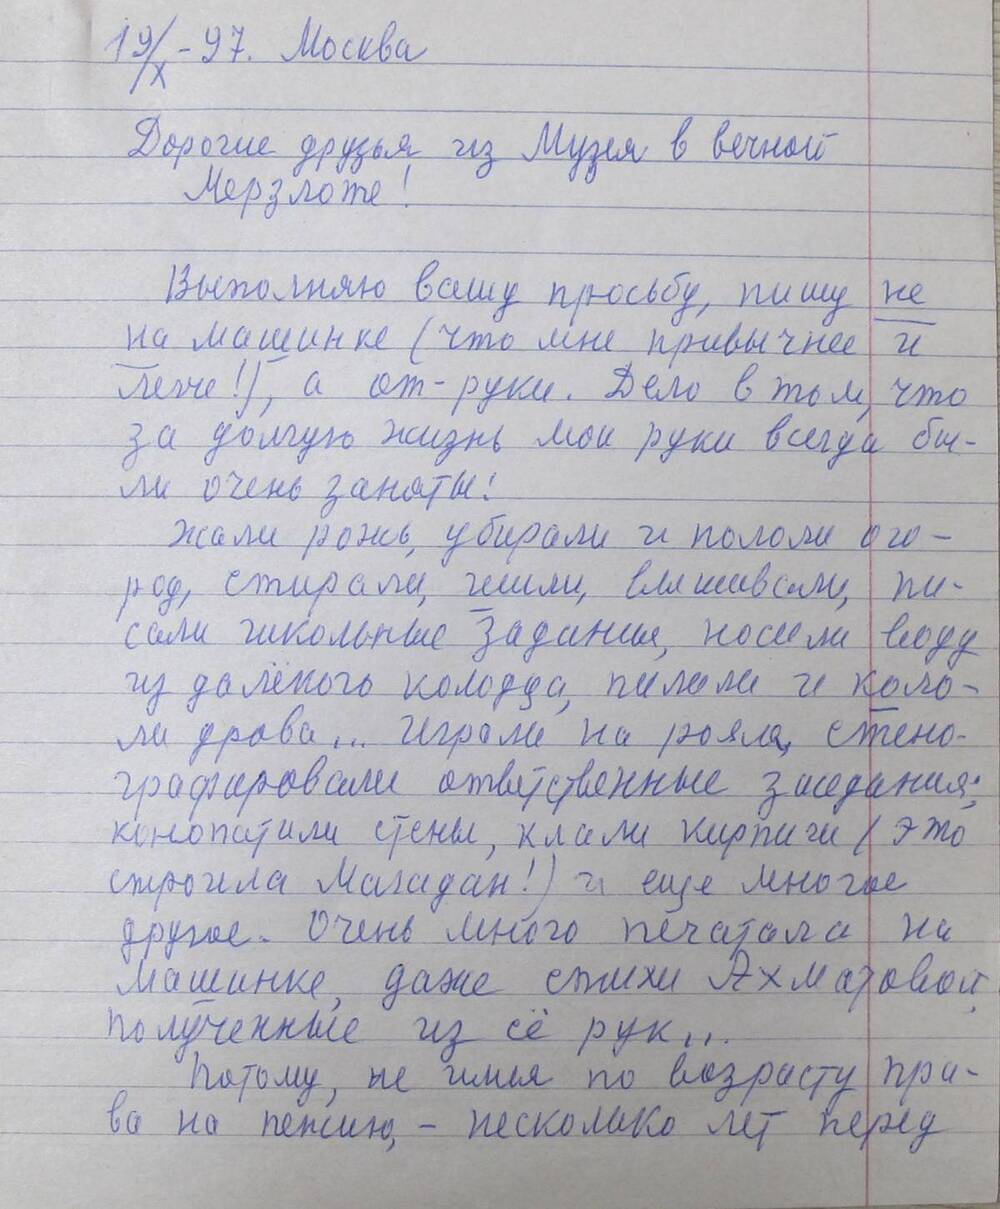 19/X-97. Москва
Дорогие друзья из Музея в вечной
Мерзлоте!
Выполняю вашу просьбу, пишу не
на машинке (что мне привычнее и
легче!), а от-руки. Дело в том, что
за долгую жизнь мои руки всегда бы-
ли очень заняты!
Жали рожь, убирали и пололи ого-
род, стирали, шили, вышивали, пи-
сали школьные задания, носили воду
из далёкого колодца, пилили и коло-
ли дрова... Играли на рояле, стено-
графировали ответственные заседания;
конопатили стены, клали кирпичи (это
строила Магадан!) и еще многое
другое. Очень много печатала на
машинке, даже стихи Ахматовой,
полученные из её рук...
Потому, не имея по возрасту пра-
ва на пенсию, - несколько лет перед